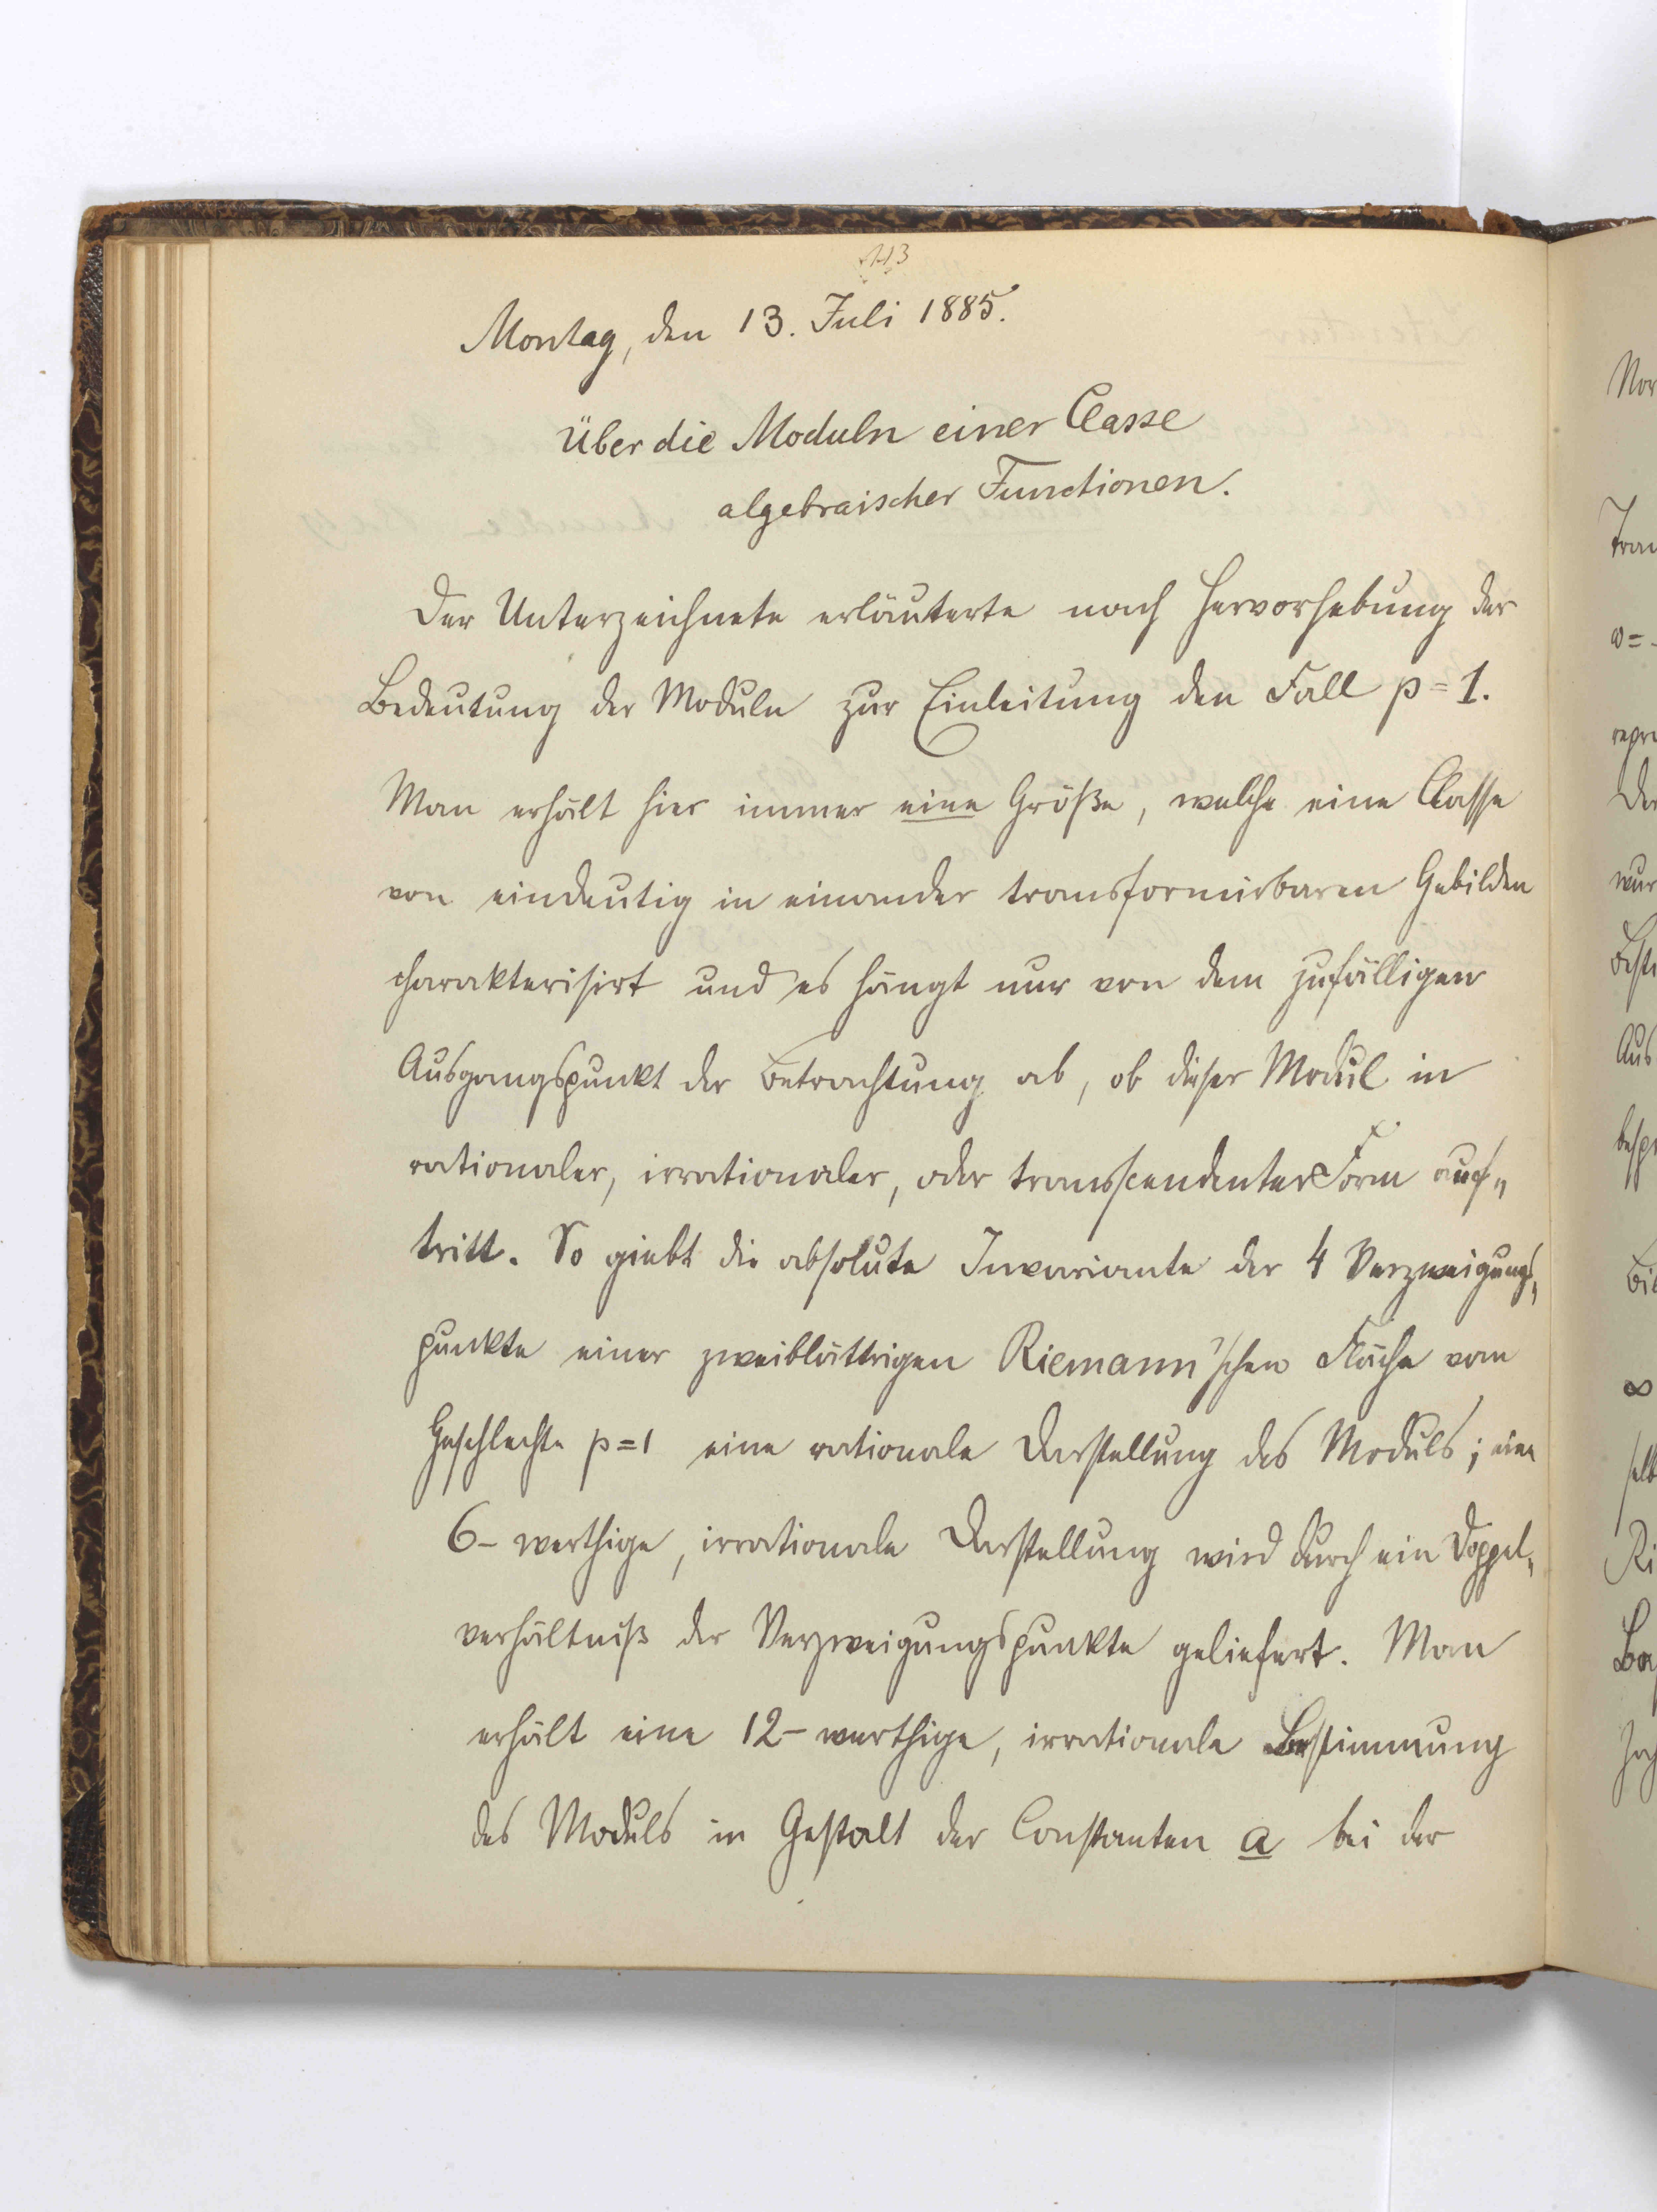 113
Montag, den 13. Juli 1885.
Über die Moduln einer Classe
algebraischer Functionen.
Der Unterzeichnete erläuterte nach Hervorhebung der
Bedeutung der Moduln zur Einleitung den Fall p = 1.
Man erhält hier immer eine Größe, welche eine Classe
von eindeutig in einander transformirbaren Gebilden
charakterisirt und es hängt nur von dem zufälligen
Ausgangspunkt der Betrachtung ab, ob dieser Modul in
rationaler, irrationaler, oder transscendenter Form auf„
tritt. So giebt die absolute Invariante der 4 Verzweigungs„
punkte einer zweiblättrigen Riemann'schen Fläche vom
Geschlechte p=1 eine rationale Darstellung des Moduls; eine
6-werthige, irrationale Darstellung wird durch ein Doppel„
verhältniß der Verzweigungspunkte geliefert. Man
erhält eine 12-werthige, irrationale Bestimmung
des Moduls in Gestalt der Constanten a bei der